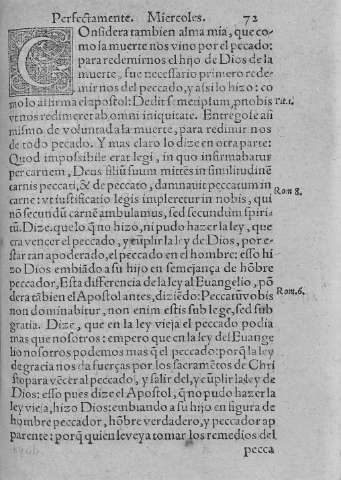 Perfectamente. Miercoles. 72
COnsidera tambien alma mia, que co-
mo la muerte nos vino por el peccado:
para redemirnos el hijo de Dios de la
muerte, fue necessario primero rede-
mir nos del peccado, y assi lo hizo: co
mo lo affirma el apostol: Dedit semetipsum, p nobis Tit. 2.
vt nos redimeret ab omni iniquitate. Entregose asi
mismo de voluntad a la muerte, para redimir nos
de todo peccado. Y mas claro lo dize en otra parte:
Quod impossibile erat legi, in quo infirmabatur
per carnem, Deus filiũ suum mittẽs in similitudinẽ
carnis peccati, & de peccato, damnauit peccatum in
carne: vt iustificatio legis impleretur in nobis, qui Rom 8.
nõ secundũ carnẽ ambulamus, sed secundum spiri-
tũ. Dize. que lo q̃ no hizo, ni pudo hazer la ley, que
era vencer el peccado, y cũplir la ley de Dios, por e-
star tan apoderado, el peccado en el hombre: esso hi
zo Dios embiãdo a su hijo en semejança de hõbre
peccador, Esta differencia de la ley al Euangelio, põ
dera tãbien el Apostol antes, diziẽdo: Peccatũ vobis Rom. 6.
non dominabitur, non enim estis sub lege, sed sub
gratia. Dize, que en la ley vieja el peccado podia
mas que nosotros: empero que en la ley del Euange
lio nosotros podemos mas q̃ el peccado: porq̃ la ley
de gracia nos da fuerças por los sacramẽtos de Chri
sto para vẽcer al peccado, y salir del, y cũplir la ley de
Dios: esso pues dize el Apostol, q̃ no pudo hazer la
ley vieja, hizo Dios: embiando a su hijo en figura de
hombre peccador, hõbre verdadero, y peccador ap
parente: porq̃ quien le veya tomar los remedios del
pecca